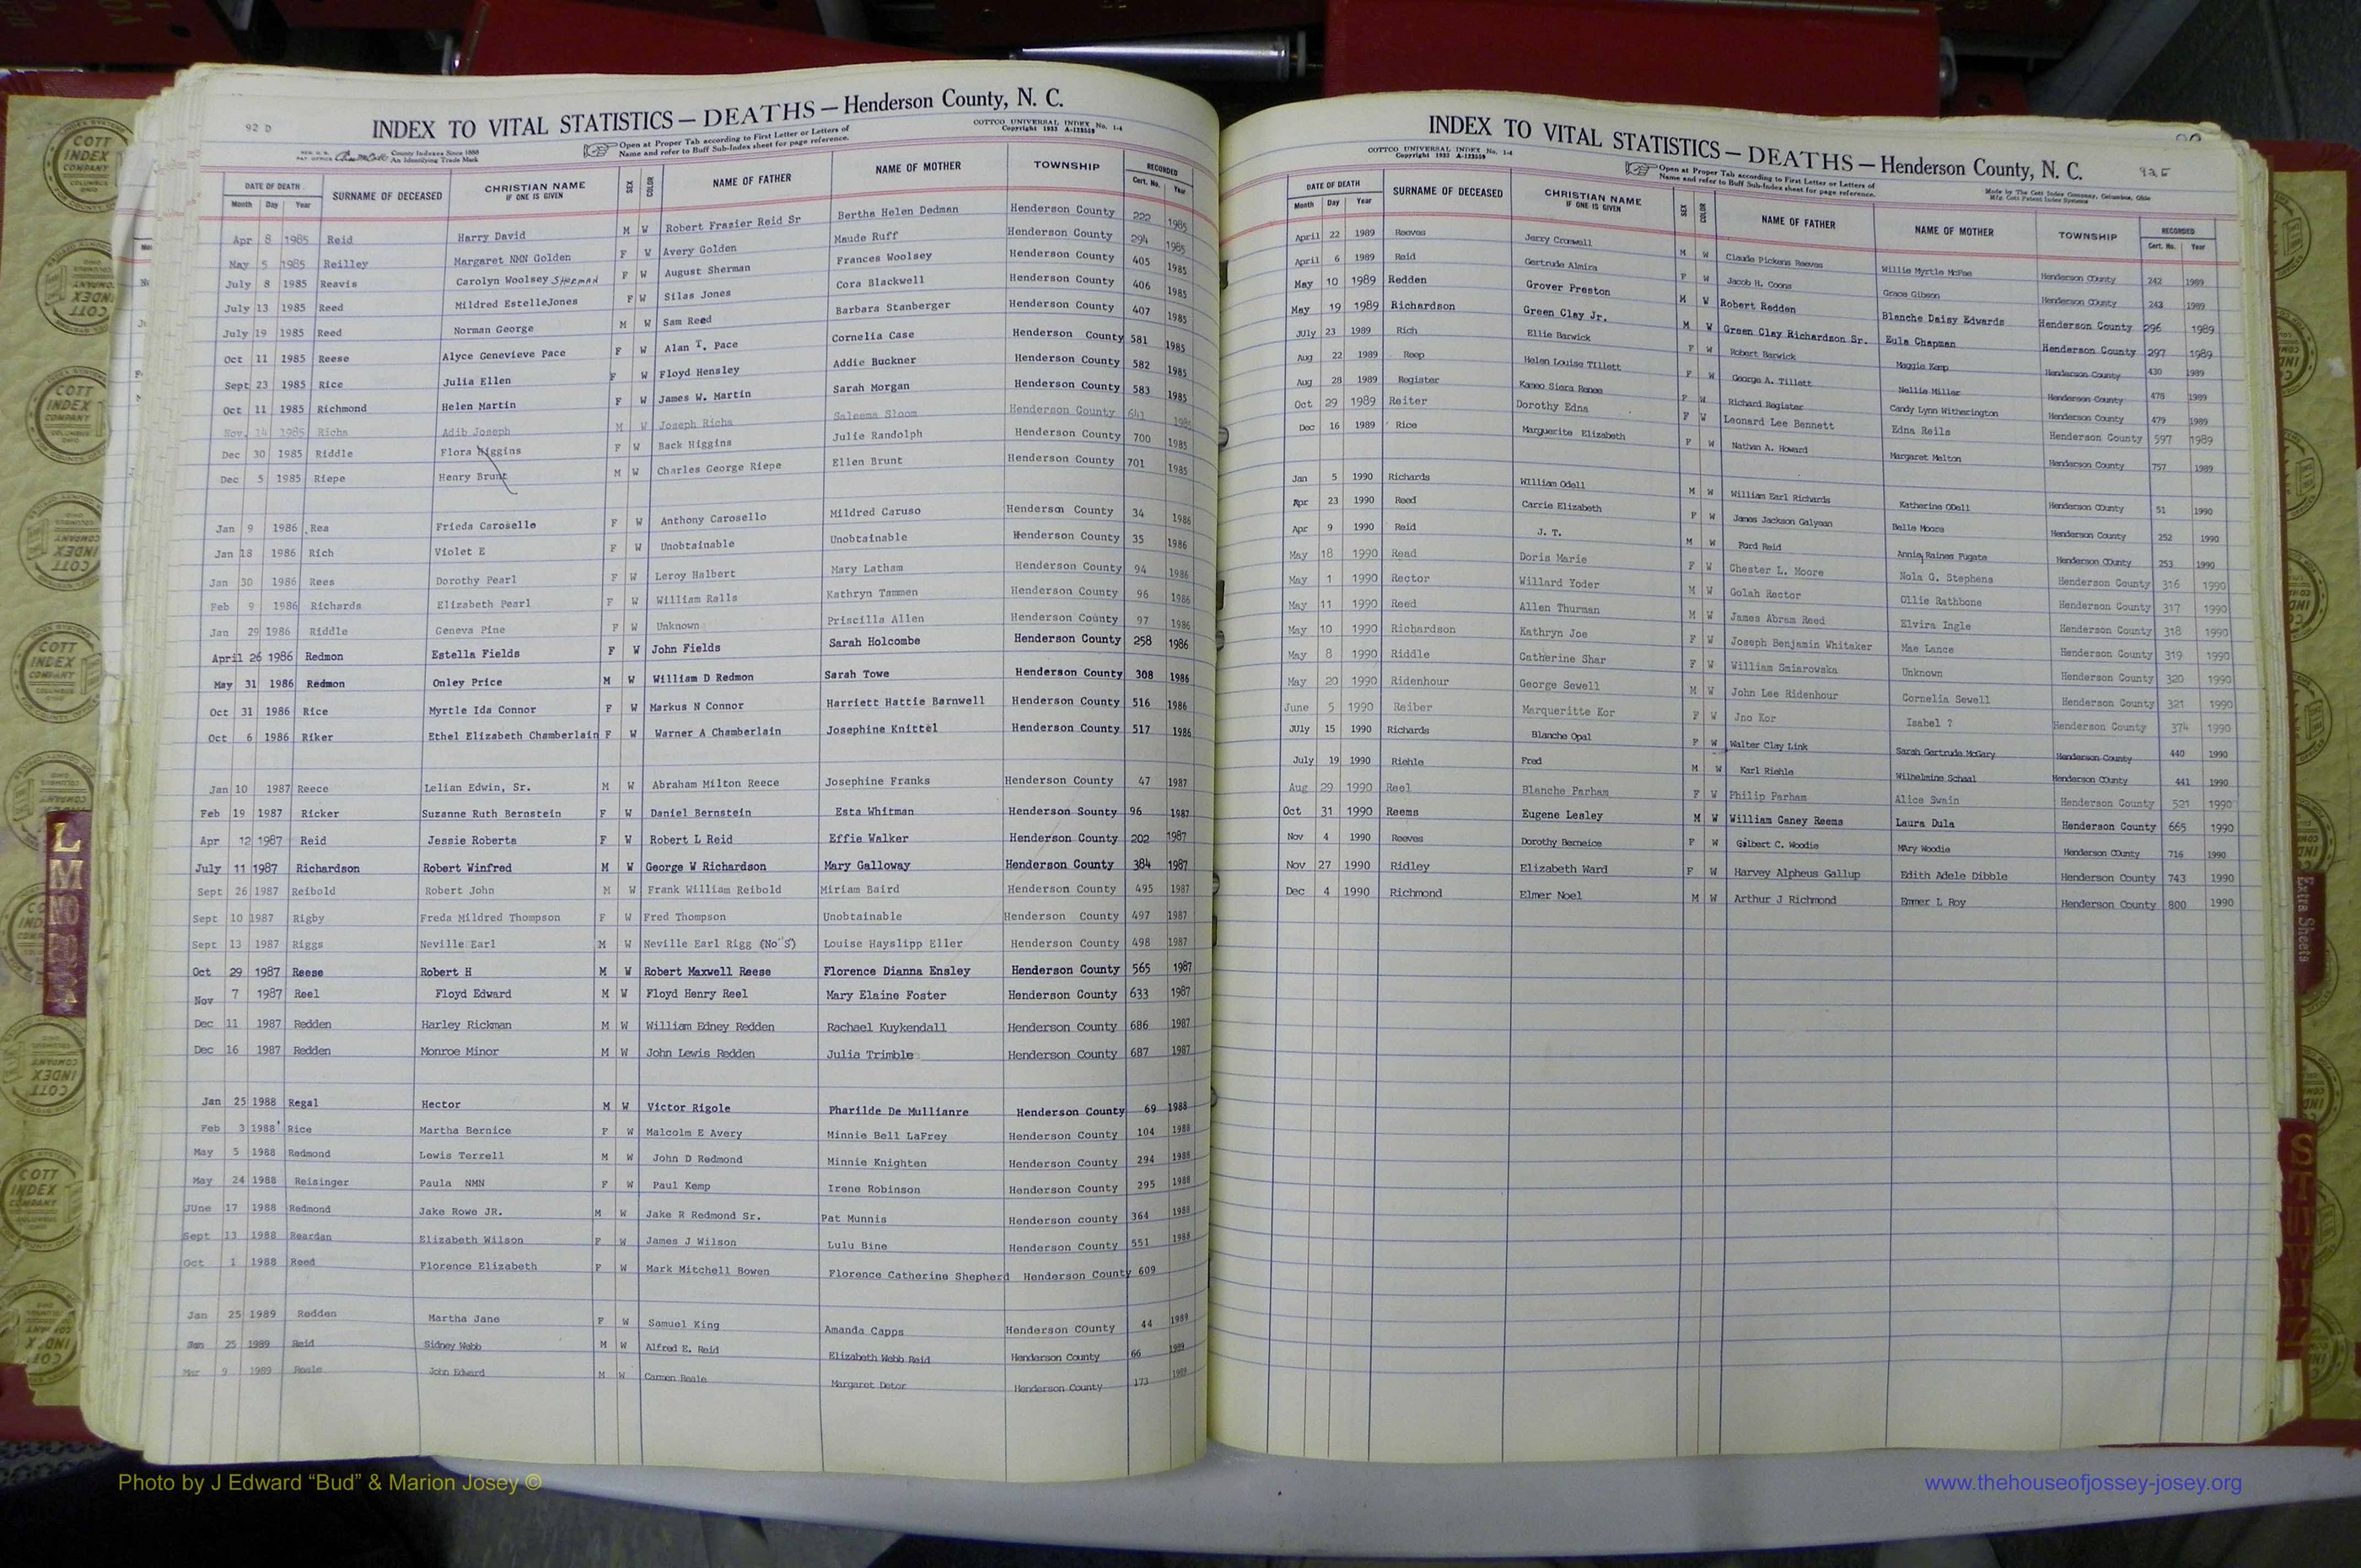 92 D
INDEX TO VITAL STATISTICS — DEATHS — Henderson County, N. C.
County Indexes Since 1888
An Identifying Trade Mark
Open at Proper Tab according to First Letter or Letters of
Name and refer to Buff Sub-Index sheet for page reference.
COTTCO UNIVERSAL INDEX No. 1-4
Copyright 1933 A-123559
DATE OF DEATH SURNAME OF DECEASED CHRISTIAN NAME IF ONE IS GIVEN SEX COLOR NAME OF FATHER NAME OF MOTHER TOWNSHIP RECORDED
Month Day Year Cert. No. Year
Apr 8 1985 Reid Harry David M W Robert Frazier Reid Sr Bertha Helen Dedman Henderson County 222 1985
May 5 1985 Reilley Margaret NMN Golden F W Avery Golden Maude Ruff Henderson County 294 1985
July 8 1985 Reavis Carolyn Woolsey Sherman F W August Sherman Frances Woolsey Henderson County 405 1985
July 13 1985 Reed Mildred EstelleJones F W Silas Jones Cora Blackwell Henderson County 406 1985
July 19 1985 Reed Norman George M W Sam Reed Barbara Stanberger Henderson County 407 1985
Oct 11 1985 Reese Alyce Genevieve Pace F W Alan T. Pace Cornelia Case Henderson County 581 1985
Sept 23 1985 Rice Julia Ellen F W Floyd Hensley Addie Buckner Henderson County 582 1985
Oct 11 1985 Richmond Helen Martin F W James W. Martin Sarah Morgan Henderson County 583 1985
Nov. 14 1985 Richa Adib Joseph M W Joseph Richa Saleema Sloom Henderson County 641 1985
Dec 30 1985 Riddle Flora Higgins F W Back Higgins Julie Randolph Henderson County 700 1985
Dec 5 1985 Riepe Henry Brunt M W Charles George Riepe Ellen Brunt Henderson County 701 1985
Jan 9 1986 Rea Frieda Carosello F W Anthony Carosello Mildred Caruso Henderson County 34 1986
Jan 18 1986 Rich Violet E F W Unobtainable Unobtainable Henderson County 35 1986
Jan 30 1986 Rees Dorothy Pearl F W Leroy Halbert Mary Latham Henderson County 94 1986
Feb 9 1986 Richards Elizabeth Pearl F W William Ralls Kathryn Tammen Henderson County 96 1986
Jan 29 1986 Riddle Geneva Pine F W Unknown Priscilla Allen Henderson County 97 1986
April 26 1986 Redmon Estella Fields F W John Fields Sarah Holcombe Henderson County 258 1986
May 31 1986 Redmon Onley Price M W William D Redmon Sarah Towe Henderson County 308 1986
Oct 31 1986 Rice Myrtle Ida Connor F W Markus N Connor Harriett Hattie Barnwell Henderson County 516 1986
Oct 6 1986 Riker Ethel Elizabeth Chamberlain F W Warner A Chamberlain Josephine Knittel Henderson County 517 1986
Jan 10 1987 Reece Lelian Edwin, Sr. M W Abraham Milton Reece Josephine Franks Henderson County 47 1987
Feb 19 1987 Ricker Suzanne Ruth Bernstein F W Daniel Bernstein Esta Whitman Henderson Sounty 96 1987
Apr 12 1987 Reid Jessie Roberta F W Robert L Reid Effie Walker Henderson County 202 1987
July 11 1987 Richardson Robert Winfred M W George W Richardson Mary Galloway Henderson County 384 1987
Sept 26 1987 Reibold Robert John M W Frank William Reibold Miriam Baird Henderson County 495 1987
Sept 10 1987 Rigby Freda Mildred Thompson F W Fred Thompson Unobtainable Henderson County 497 1987
Sept 13 1987 Riggs Neville Earl M W Neville Earl Rigg (No "S") Louise Hayslipp Eller Henderson County 498 1987
Oct 29 1987 Reese Robert H M W Robert Maxwell Reese Florence Dianna Ensley Henderson County 565 1987
Nov 7 1987 Reel Floyd Edward M W Floyd Henry Reel Mary Elaine Foster Henderson County 633 1987
Dec 11 1987 Redden Harley Rickman M W William Edney Redden Rachael Kuykendall Henderson County 686 1987
Dec 16 1987 Redden Monroe Minor M W John Lewis Redden Julia Trimble Henderson County 687 1987
Jan 25 1988 Regal Hector M W Victor Rigole Pharilde De Mullianre Henderson County 69 1988
Feb 3 1988 Rice Martha Bernice F W Malcolm E Avery Minnie Bell LaFrey Henderson County 104 1988
May 5 1988 Redmond Lewis Terrell M W John D Redmond Minnie Knighten Henderson County 294 1988
May 24 1988 Reisinger Paula NMN F W Paul Kemp Irene Robinson Henderson County 295 1988
JUne 17 1988 Redmond Jake Rowe JR. M W Jake R Redmond Sr. Pat Munnis Henderson county 364 1988
Sept 13 1988 Reardan Elizabeth Wilson F W James J Wilson Lulu Bine Henderson County 551 1988
Oct 1 1988 Reed Florence Elizabeth F W Mark Mitchell Bowen Florence Catherine Shepherd Henderson County 609
Jan 25 1989 Redden Martha Jane F W Samuel King Amanda Capps Henderson COunty 44 1989
Jan 25 1989 Reid Sidney Webb M W Alfred E. Reid Elizabeth Webb Reid Henderson County 66 1989
Mar 9 1989 Reale John Edward M W Carmen Reale Margaret Detor Henderson County 173 1989
INDEX TO VITAL STATISTICS — DEATHS — Henderson County, N. C.
92 E
COTTCO UNIVERSAL INDEX No. 1-4
Copyright 1933 A-123559
Open at Proper Tab according to First Letter or Letters of
Name and refer to Buff Sub-Index sheet for page reference.
Made by The Cott Index Company, Columbus, Ohio
DATE OF DEATH SURNAME OF DECEASED CHRISTIAN NAME IF ONE IS GIVEN SEX COLOR NAME OF FATHER NAME OF MOTHER TOWNSHIP RECORDED
Month Day Year Cert. No. Year
April 22 1989 Reeves Jerry Cromwell M W Claude Pickens Reeves Willie Myrtle McFee Henderson COunty 242 1989
April 6 1989 Reid Gertrude Almira F W Jacob H. Coons Grace Gibson Henderson COunty 243 1989
May 10 1989 Redden Grover Preston M W Robert Redden Blanche Daisy Edwards Henderson County 296 1989
May 19 1989 Richardson Green Clay Jr. M W Green Clay Richardson Sr. Eula Chapman Henderson County 297 1989
JUly 23 1989 Rich Ellie Barwick F W Robert Barwick Maggie Kemp Henderson COunty 430 1989
Aug 22 1989 Reep Helen Louise Tillett F W George A. Tillett Nellie Miller Henderson COunty 478 1989
Aug 28 1989 Register Kameo Siera Renee F W Richard Register Candy Lynn Witherington Henderson COunty 479 1989
Oct 29 1989 Reiter Dorothy Edna F W Leonard Lee Bennett Edna Reils Henderson County 597 1989
Dec 16 1989 Rice Marguerite Elizabeth F W Nathan A. Howard Margaret Melton Henderson COunty 757 1989
Jan 5 1990 Richards William Odell M W William Earl Richards Katherine Odell Henderson COunty 51 1990
Apr 23 1990 Reed Carrie Elizabeth F W James Jackson Galyean Belle Moore Henderson COunty 252 1990
Apr 9 1990 Reid J. T. M W Ford Reid Annie Raines Fugate Henderson COunty 253 1990
May 18 1990 Read Doris Marie F W Chester L. Moore Nola G. Stephens Henderson County 316 1990
May 1 1990 Rector Willard Yoder M W Golah Rector Ollie Rathbone Henderson County 317 1990
May 11 1990 Reed Allen Thurman M W James Abram Reed Elvira Ingle Henderson County 318 1990
May 10 1990 Richardson Kathryn Joe F W Joseph Benjamin Whitaker Mae Lance Henderson County 319 1990
May 8 1990 Riddle Catherine Shar F W William Smiarowska Unknown Henderson County 320 1990
May 20 1990 Ridenhour George Sewell M W John Lee Ridenhour Cornelia Sewell Henderson County 321 1990
June 5 1990 Reiber Marqueritte Kor F W Jno Kor Isabel ? Henderson County 374 1990
JUly 15 1990 Richards Blanche Opal F W Walter Clay Link Sarah Gertrude McGary Henderson COunty 440 1990
July 19 1990 Riehle Fred M W Karl Riehle Wilhelmine Schaal Henderson COunty 441 1990
Aug 29 1990 Reel Blanche Parham F W Philip Parham Alice Swain Henderson County 521 1990
Oct 31 1990 Reems Eugene Lesley M W William Caney Reems Laura Dula Henderson County 665 1990
Nov 4 1990 Reeves Dorothy Berneice F W Gilbert C. Woodie MAry Woodie Henderson COunty 716 1990
Nov 27 1990 Ridley Elizabeth Ward F W Harvey Alpheus Gallup Edith Adele Dibble Henderson County 743 1990
Dec 4 1990 Richmond Elmer Noel M W Arthur J Richmond Emmer L Roy Henderson County 800 1990
COTT INDEX COMPANY
Extra Sheets
Photo by J Edward “Bud” & Marion Josey ©
www.thehouseofjossey-josey.org